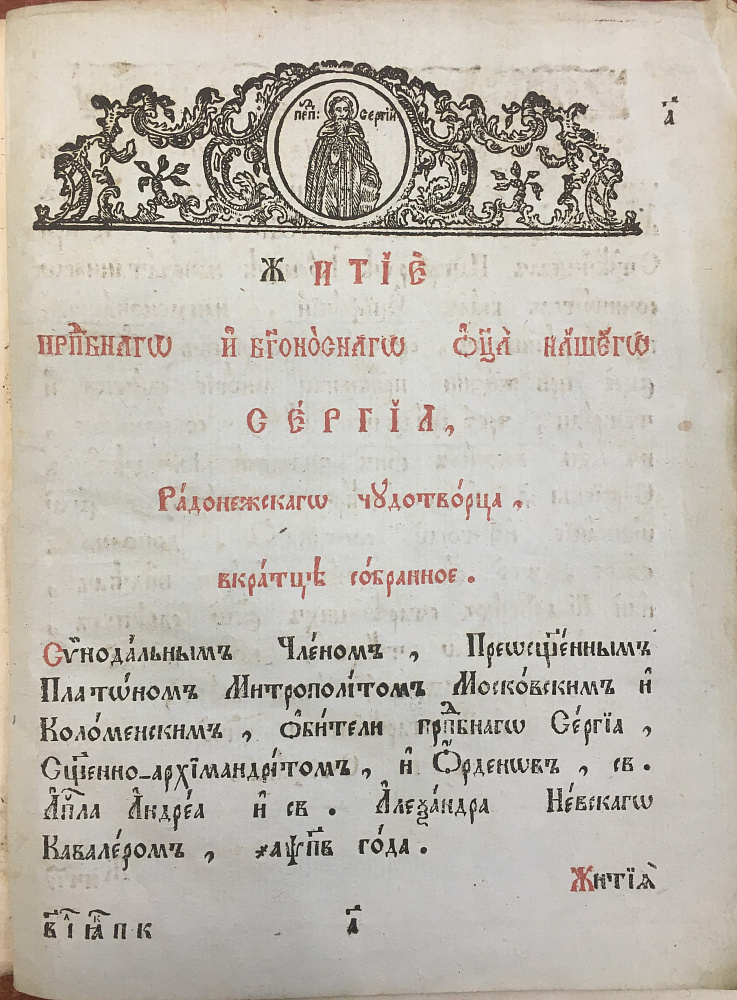 прпⷣ: Сергїй
а҃
ЖИТІЀ
ПРПⷣБНАГѠ И҆ БГ҃ОНО́СНАГѠ Ѻ҆ЦА̀ НА́ШЕГѠ
СЕ́РГІА,
Ра́донежскагѡ чꙋдотво́рца,
вкра́тцѣ со́бранное.
Сѵ́нода́льнымъ Чле́номъ, Преѡсщ҃е́ннымъ
Платѡ́номъ Митрополі́томъ Моско́вскимъ и҆
Коло́менскимъ, ѻ҆би́тели прпⷣбнагѡ Се́ргїа,
Сщ҃е́нно-архїмандрі́томъ, и҆ Ѻ҆́рденѡвъ, св.
А҆пⷭ҇ла А҆ндре́а и҆ св. А҆леѯа́ндра Не́вскагѡ
Кавале́ромъ, ҂аѱп҃в го́да.
Житїѧ̀
а҃